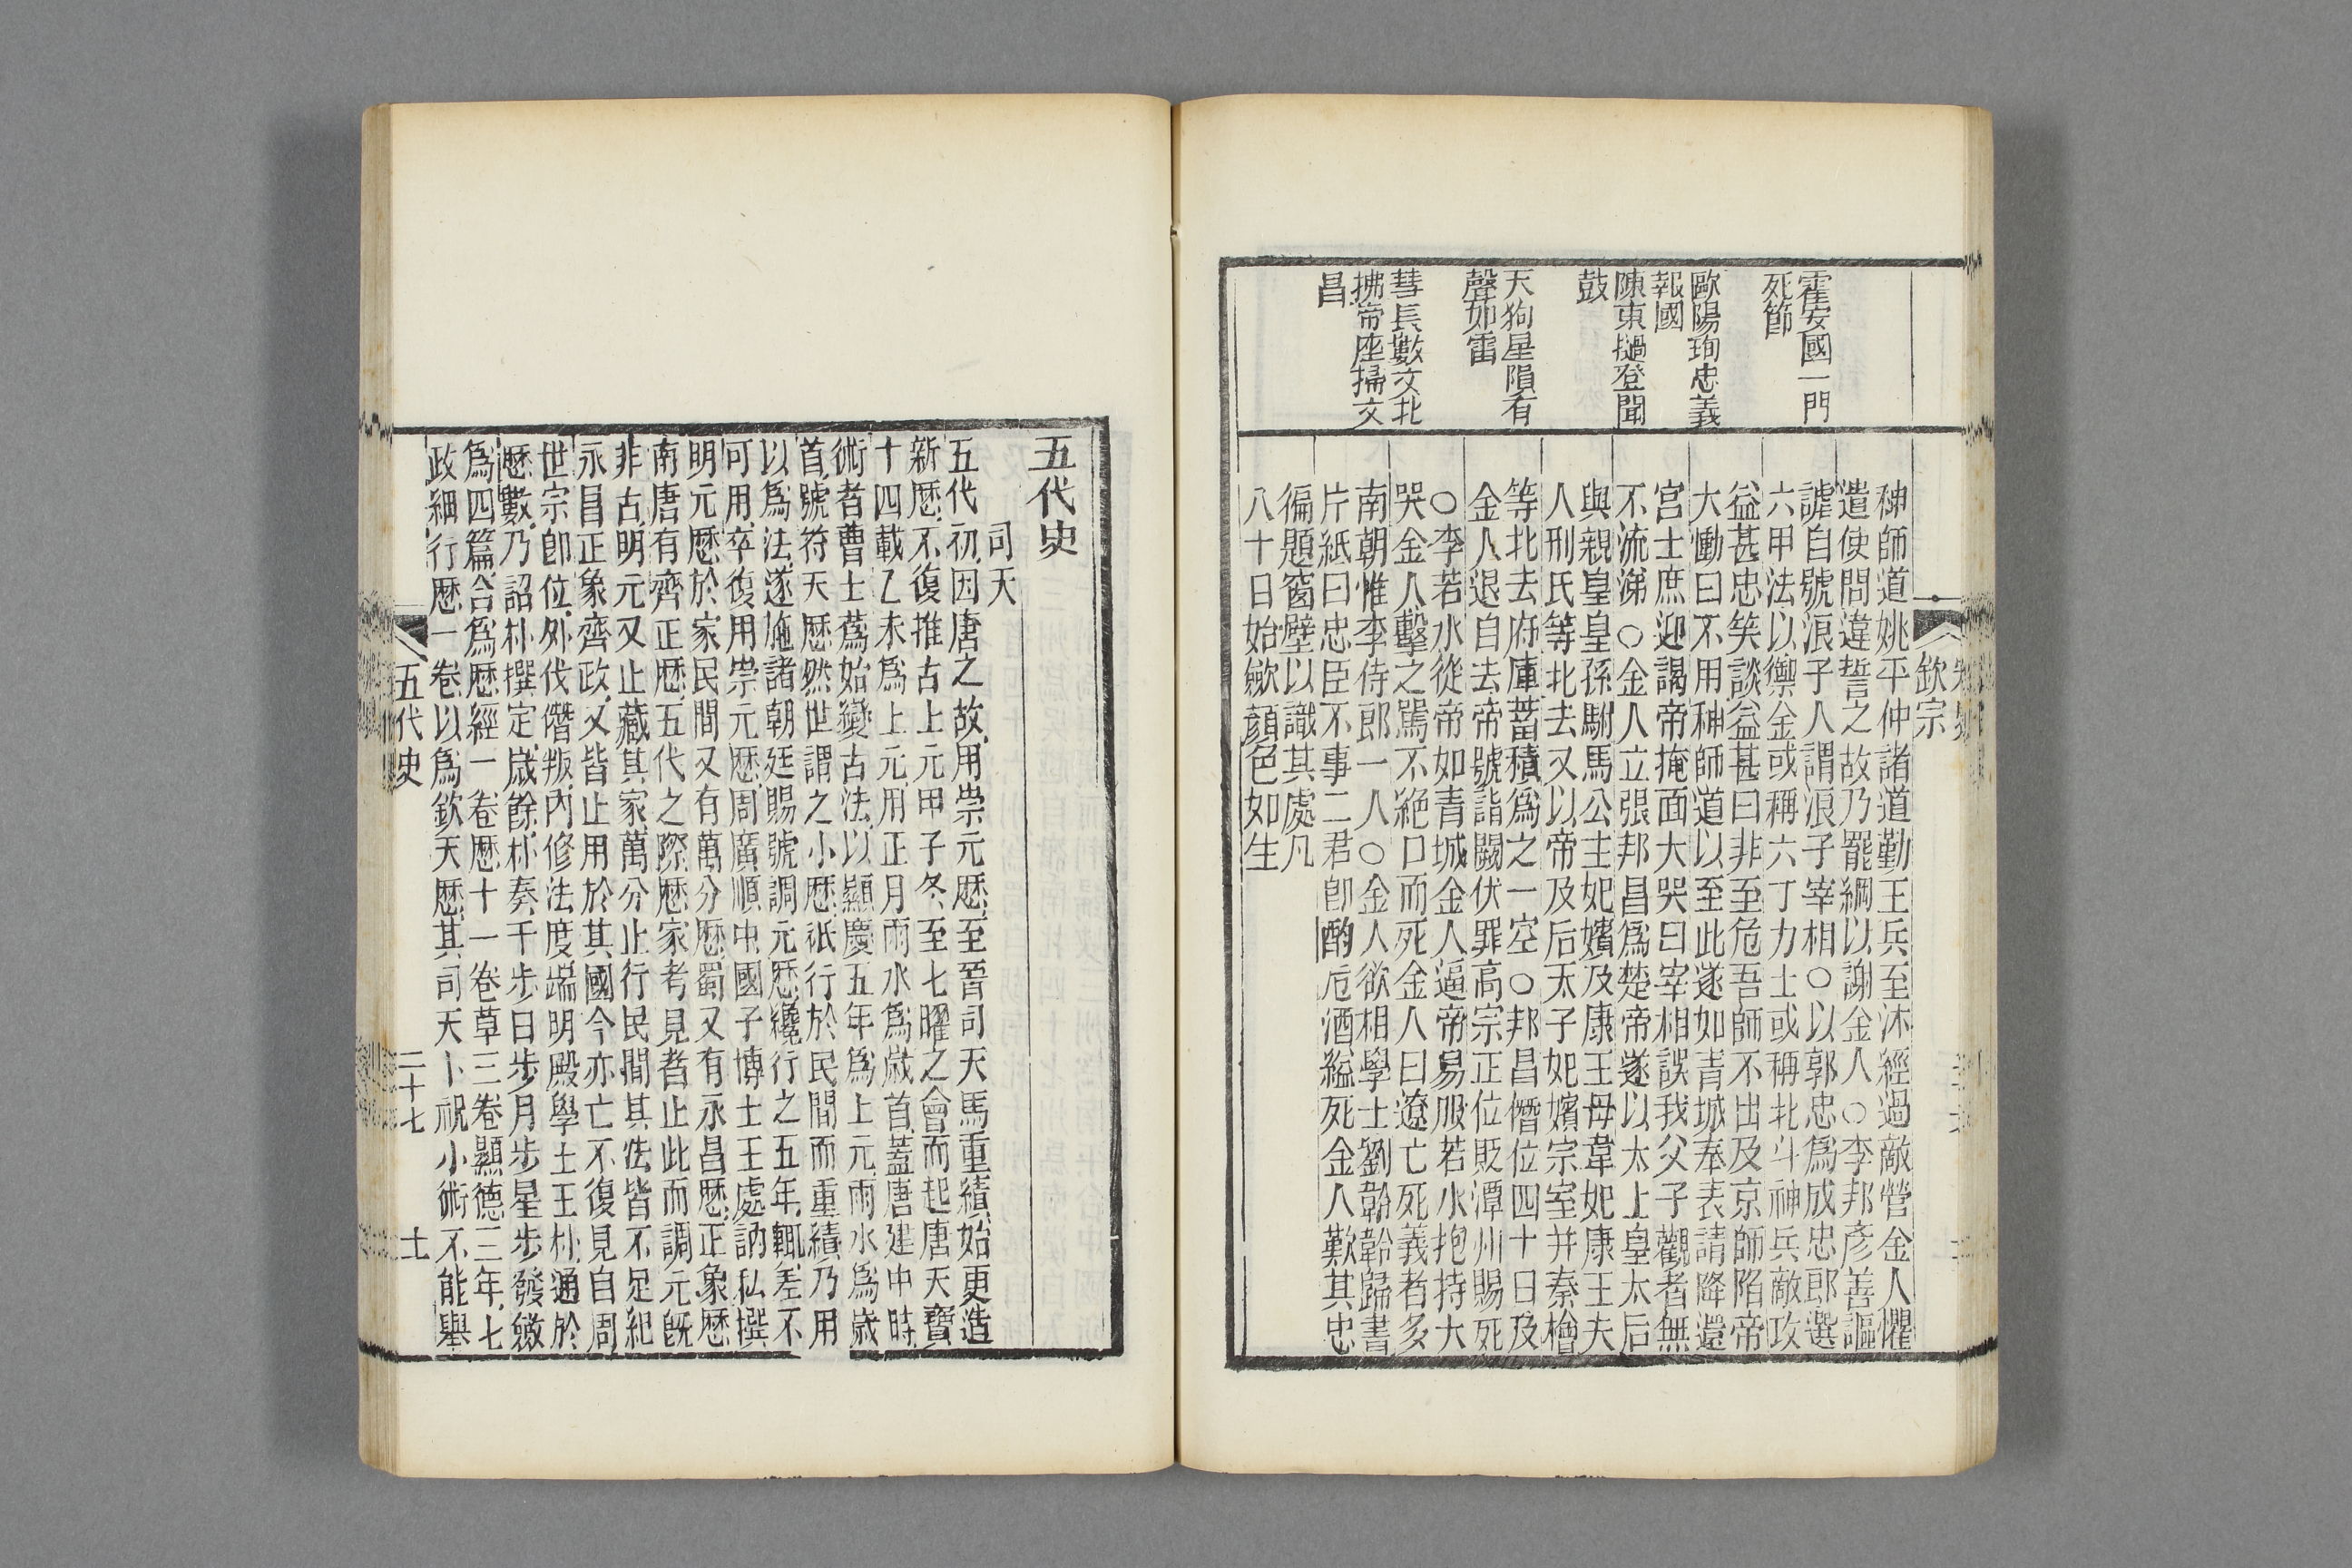 欽宗
霍安國一門
死節
歐陽珣忠義
報國
陳東撾登聞
鼓
天狗星隕有
聲如雷
彗長數丈北
拂帝座掃文
昌
种師道姚平仲諸道勤王兵至沐經過敵營金人懼
遣使問違誓之故乃罷綱以謝金人○李邦彥善謳
謔自號浪子人謂浪子宰相○以郭忠爲成忠郎選
六甲法以禦金或稱六丁力士或稱北斗神兵敵攻
益甚忠笑談益甚曰非至危吾師不出及京師陷帝
大慟曰不用种師道以至此遂如青城奉表請降還
宮士庶迎謁帝掩面大哭曰宰相誤我父子觀者無
不流涕○金人立張邦昌爲楚帝遂以太上皇太后
與親皇皇孫駙馬公主妃嬪及康王母韋妃康王夫
人刑氏等北去又以帝及后太子妃嬪宗室并秦檜
等北去府庫蓄積爲之一空○邦昌僭位四十日及
金人退自去帝號詣闕伏罪高宗正位貶潭州賜死
○李若水從帝如青城金人逼帝易服若水抱持大
哭金人擊之罵不絕口而死金人曰遼亡死義者多
南朝惟李侍郎一人○金人欲相學士劉韐韐歸書
片紙曰忠臣不事二君卽酌卮酒縊死金人歎其忠
徧題窗壁以識其處凡
八十日始歛顏色如生
五代史
司天
五代初因唐之故用崇元歷至晉司天馬重績始更造
新歷不復推古上元甲子冬至七曜之會而起唐天寶
十四載乙未爲上元用正月雨水爲歲首蓋唐建中時
術者曹士蔿始變古法以顯慶五年爲上元雨水爲歲
首號符天歷然世謂之小歷祇行於民間而重績乃用
以爲法遂施諸朝廷賜號調元歷纔行之五年輒差不
可用卒復用崇元歷周廣順中國子博士王處訥私撰
明元歷於家民間又有萬分歷蜀又有永昌歷正象歷
南唐有齊正歷五代之際歷家考見者止此而調元旣
非古明元又止藏其家萬分止行民間其法皆不足紀
永昌正象齊政又皆止用於其國今亦亡不復見自周
世宗卽位外伐僭叛內修法度端明殿學士王朴通於
歷數乃詔朴撰定歲餘朴奏千步日步月步星步發斂
爲四篇合爲歷經一卷歷十一卷草三卷顯德三年七
政細行歷一卷以爲欽天歷其司天卜祝小術不能舉
五代史 二十七 十